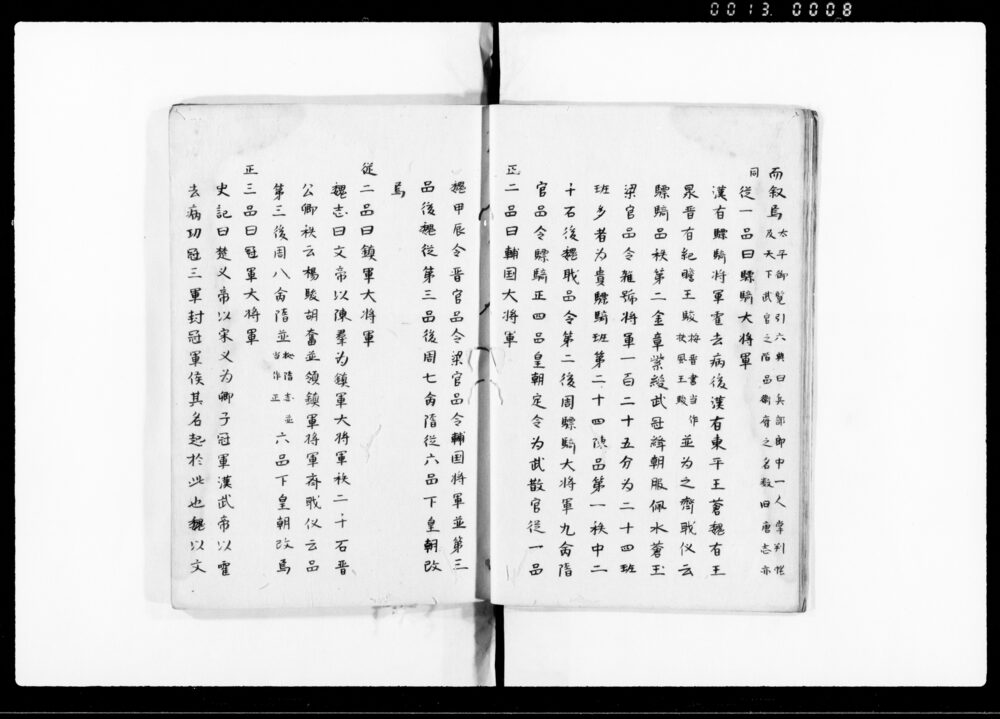 0013 0008
而叙焉太平御覧引六典曰兵部郎中一人掌判帳
及天下武官之階品衛府之名数旧唐志亦
同
從一品曰驃騎大将軍
漢有驃騎将軍霍去病後漢有東平王蒼魏有王
泉晋有紀瞻王駿按晋書当作
扶風王駿並为之齊職仪云
驃騎品秩第二金章紫綬武冠絳朝服佩水蒼玉
梁官品令雜號将軍一百二十五分为二十四班
班多者为貴驃騎班第二十四陳品第一秩中二
千石後魏職品令第二後周驃騎大将軍九命隋
官品令驃騎正四品皇朝定令为武散官從一品
正二品曰輔国大将軍
魏甲辰令晋官品令梁官品令輔国将軍並第三
品後魏從第三品後周七命隋從六品下皇朝改
焉
從二品曰鎮軍大将軍
魏志曰文帝以陳羣为鎮軍大将軍秩二千石晋
公卿秩云楊駿胡奮並領鎮軍将軍齊職仪云品
第三後周八命隋並按隋志並
当作正六品下皇朝改焉
正三品曰冠軍大将軍
史記曰楚义帝以宋义为卿子冠軍漢武帝以霍
去病功冠三軍封冠軍侯其名起於此也魏以文